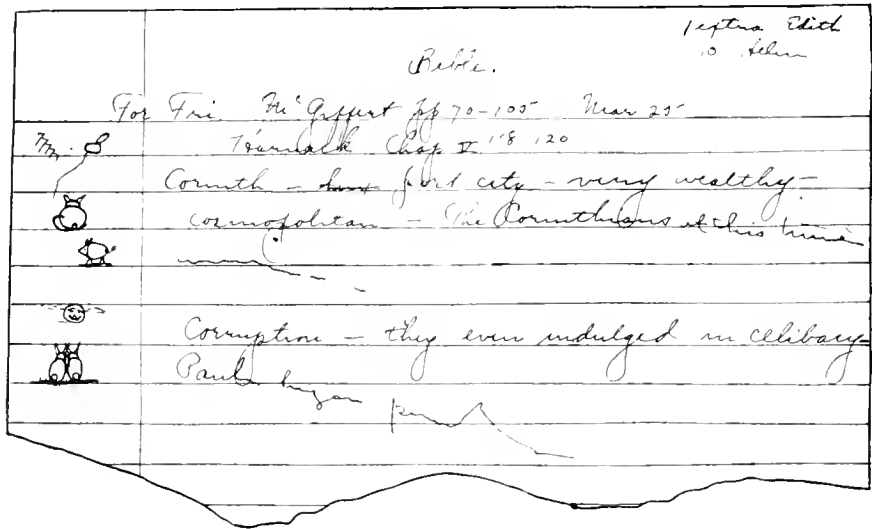 Edith
Bible.
For Fri. McGiffert pp 70-105 Mar 25
Chap V 120
Corinth - port city - very wealthy -
cosmopolitan - The Corinthians at this time
Corruption - they even indulged in celibacy -
Paul began